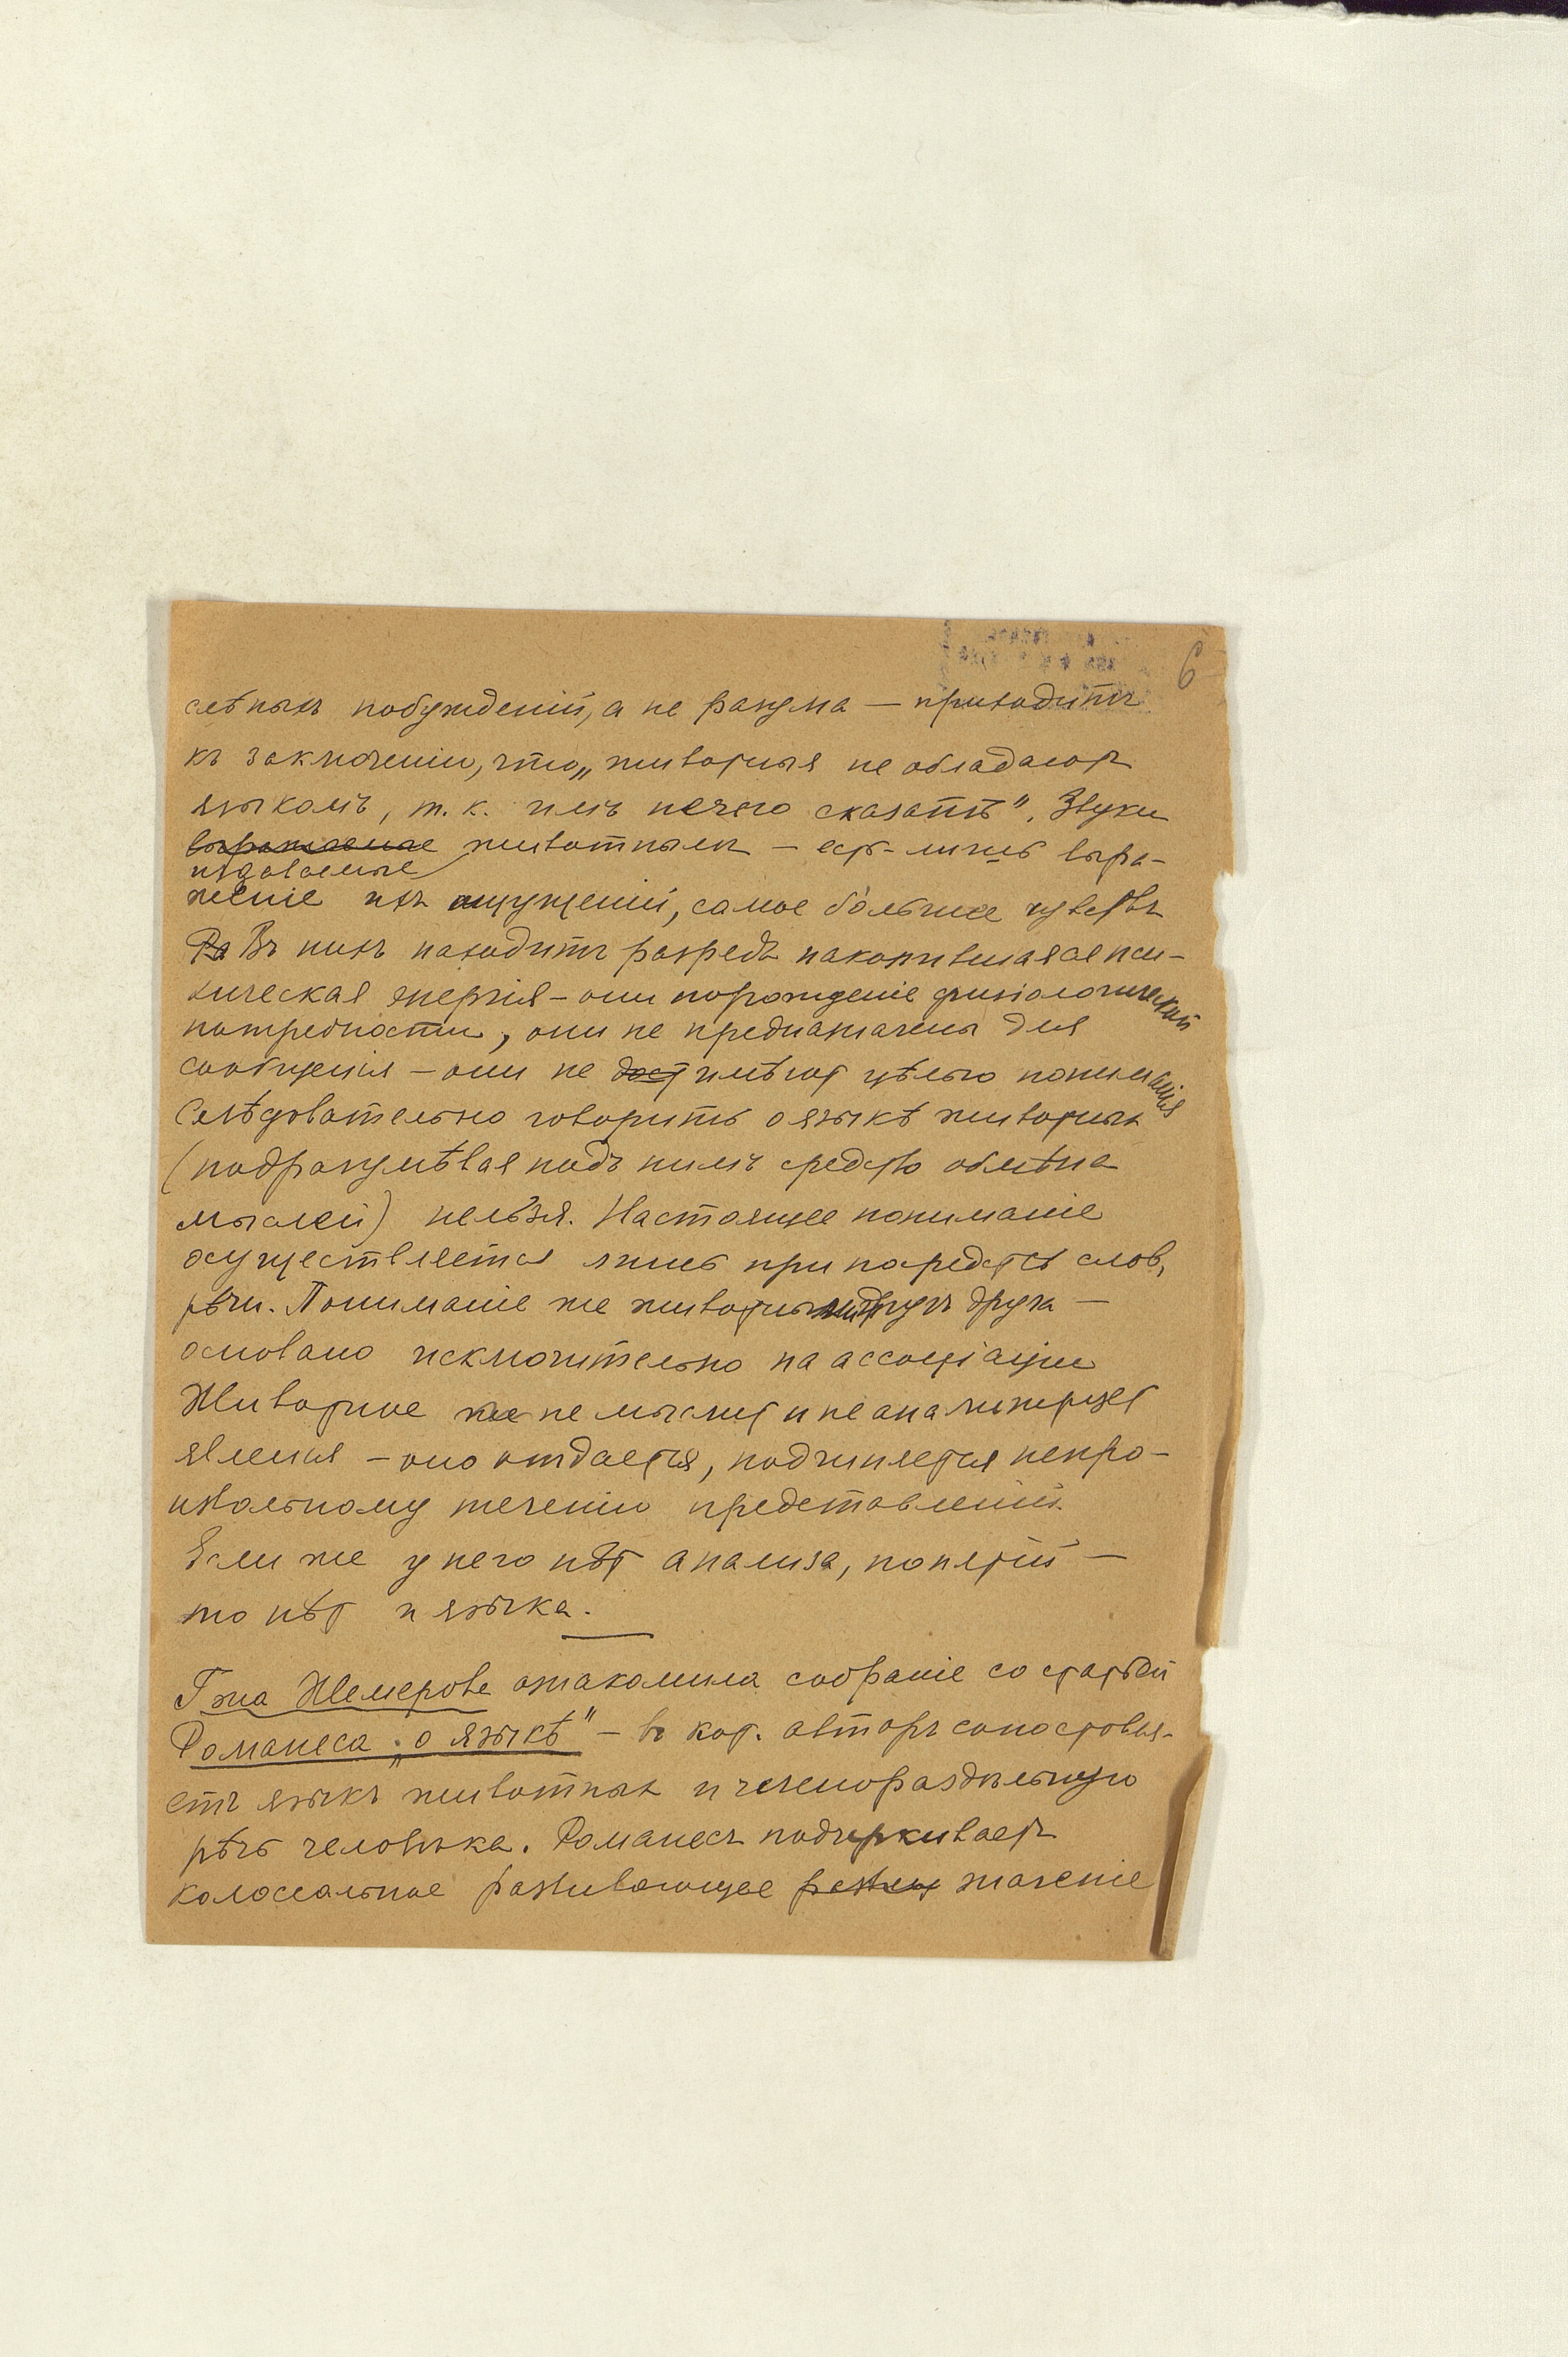 6
слѣпыхъ побужденій, а не разума — приходитъ
къ заключенію, что „животныя не обладаютъ
языкомъ, т. к. имъ нечего сказать". Звуки
выражаемые животными — есть лишь выра-
издаваемые
женіе ихъ ощущеній, самое большее чувствъ
Ра Въ нихъ находитъ разрядъ накопившаяся пси-
хическая энергія — они порожденіе физіологической
потребности, они не предназначены для
сообщенія — они не дост имѣютъ цѣлью пониманія
Слѣдовательно говорить о языкѣ животныхъ
(подразумѣвая подъ нимъ средство обмѣна
мыслей) нельзя. Настоящее пониманіе
осуществляется лишь при посредствѣ слов,
рѣчи. Пониманіе же животными другъ друга —
основано исключительно на ассоціаціи
Животное же не мыслит и не анализирует
явленія — оно отдается, подчиняется непро-
извольному теченію представленій.
Если же у него нѣт анализа, понятій —
то нѣт и языка.
Гжа Шемерове ознакомила собраніе со статьей
Романеса „о языкѣ" — въ кот. авторъ сопоставля-
етъ языкъ животныхъ и членораздѣльную
рѣчь человѣка. Романесъ подчеркиваетъ
колоссальное развивающее значеніе